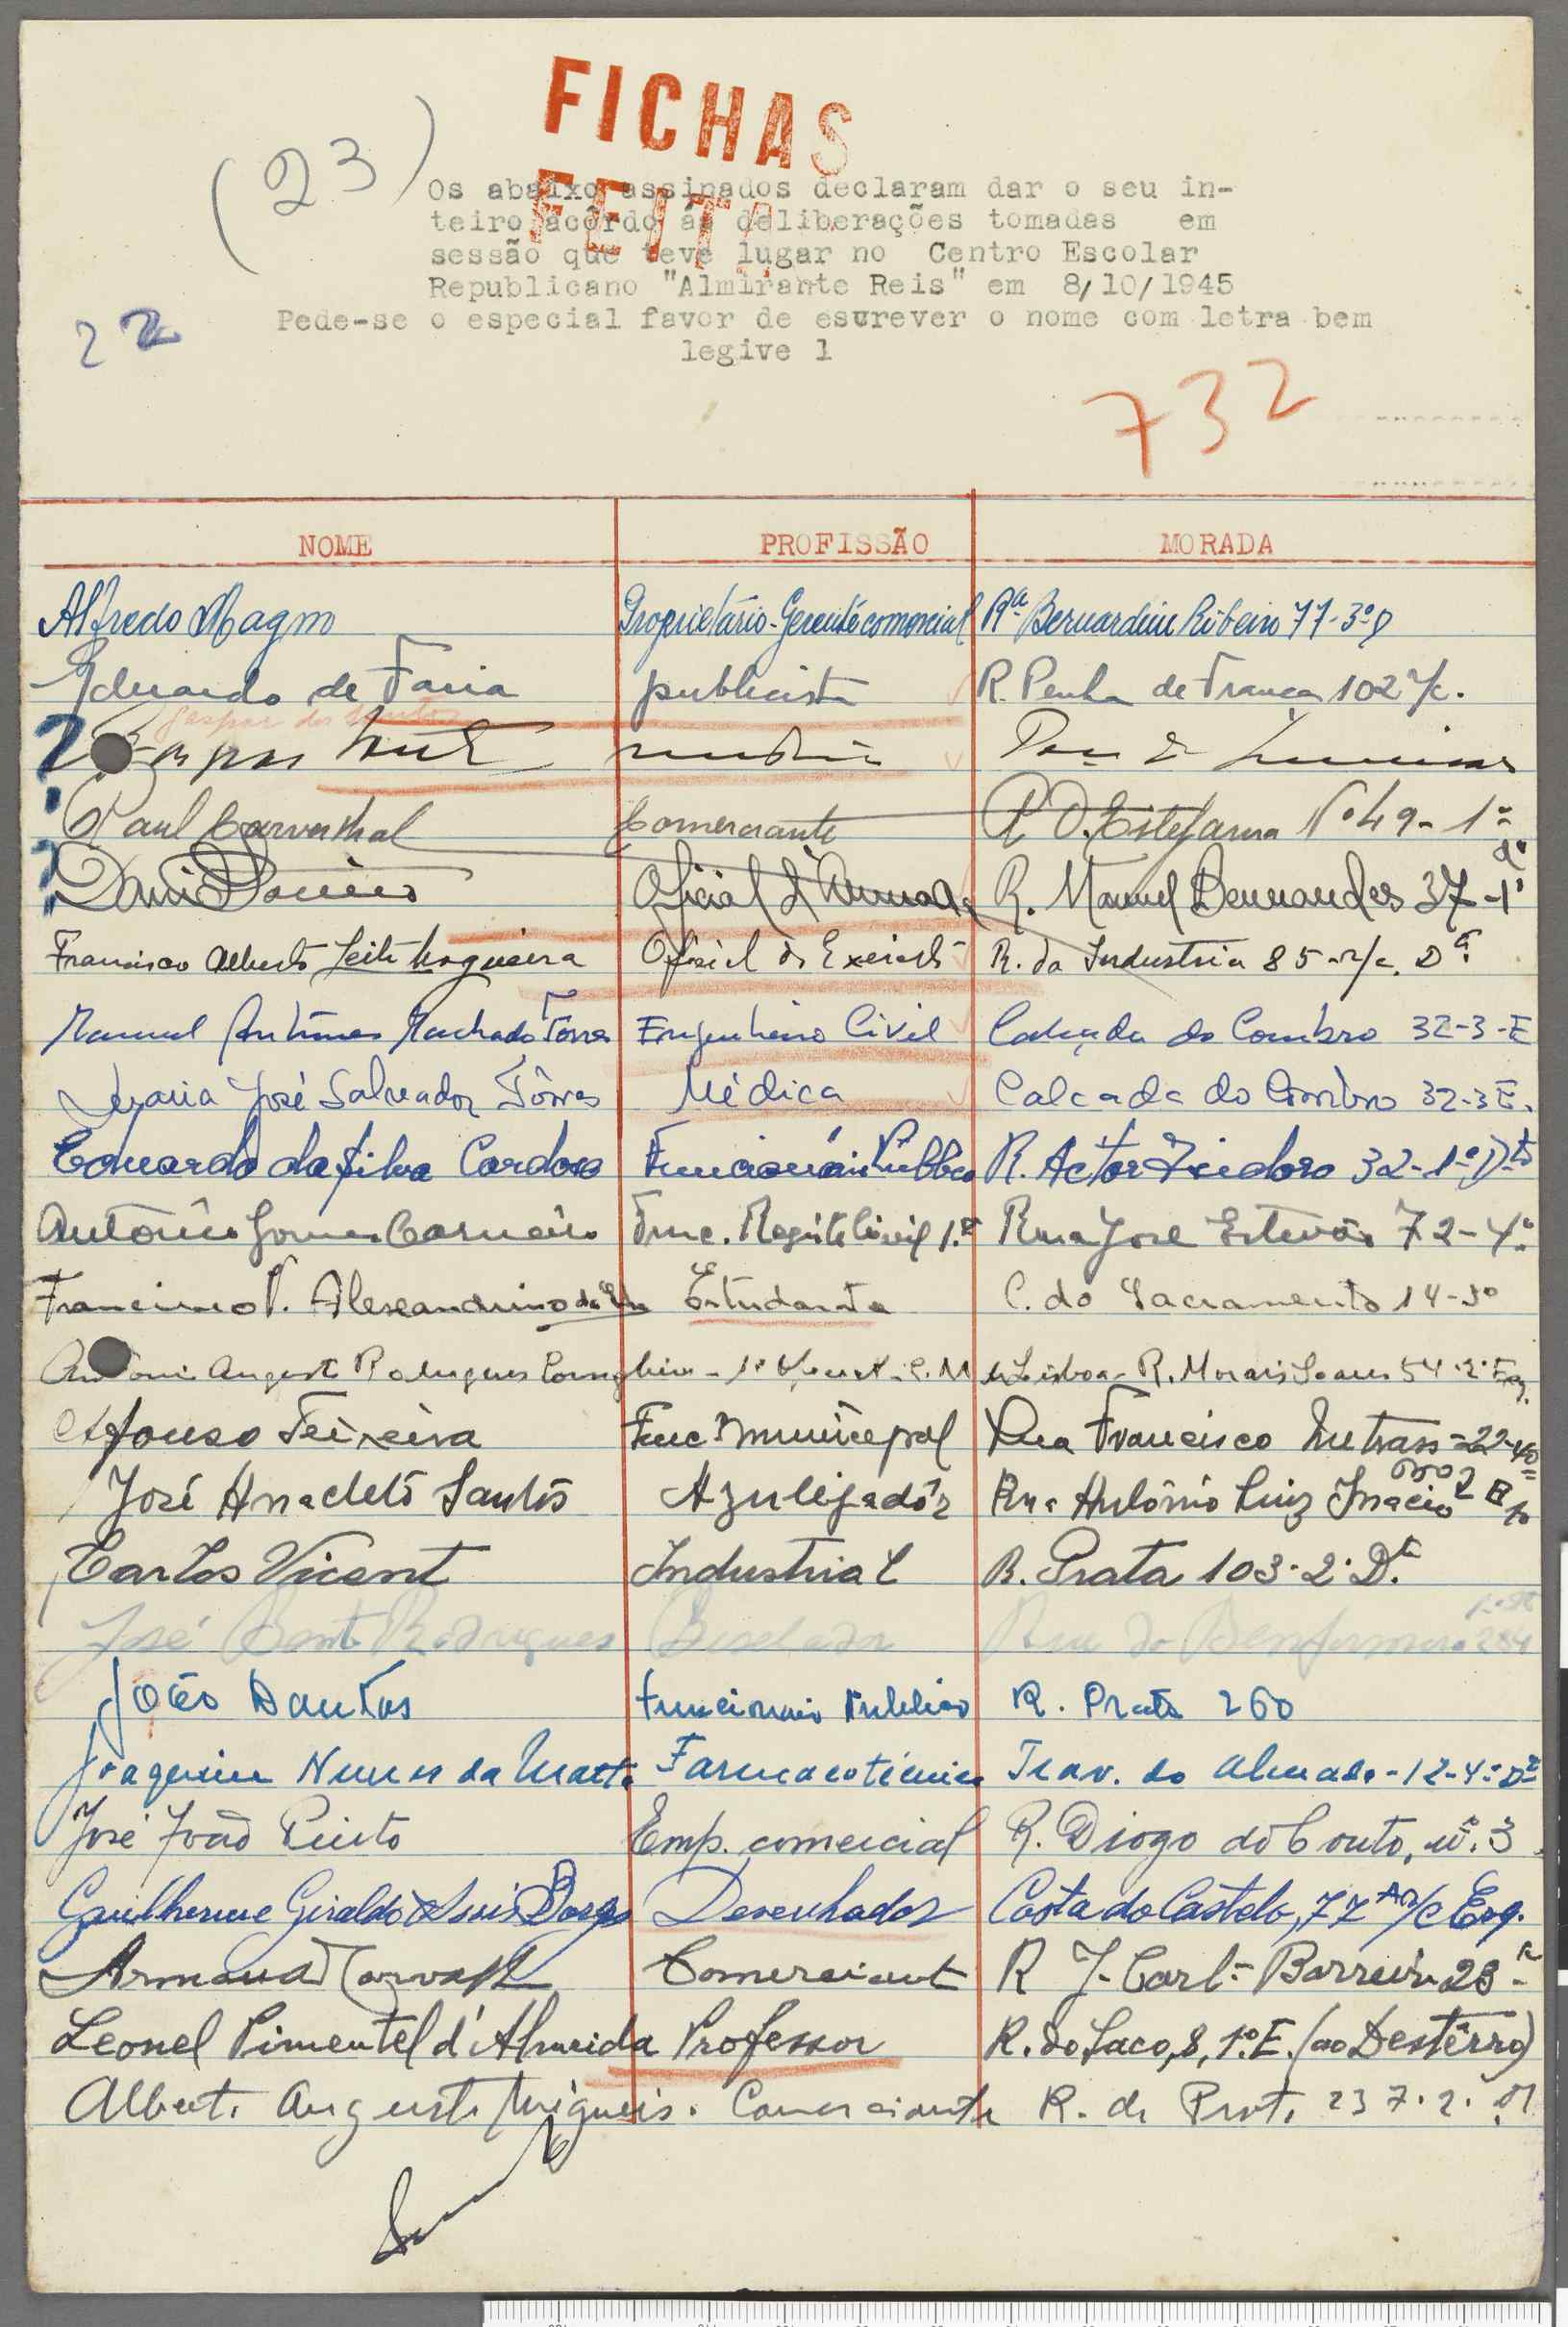 FICHAS
FEITA
(23)
Os abaixo assinados declaram dar o seu in-
teiro acôrdo ás deliberações tomadas em
sessão que teve lugar no Centro Escolar
Republicano "Almirante Reis" em 8/10/1945
22
Pede-se o especial favor de esvrever o nome com letra bem
legive l
732
NOME PROFISSÃO MORADA
Alfredo Magno Proprietário-Gerente comercial Rª Bernardim Ribeiro 77-3º D
Eduardo de Faria publicista R. Penha de França 102 r/c.
gaspar dos santos
Raul Carvalhal Comerciante R D. Estefania Nº 49-1º
Oficial d'Armada R. Manuel Bernardes 37-1º dº
Francisco Alberto Leite Nogueira Oficial do Exercito R. da Industria 85-r/c. Dª
Manuel Antunes Machado Torres Engenheiro Civil Calçada do Combro 32-3-E
Maria José Salvador Tôrres Médica Calçada do Combro 32-3E.
Eduardo da Silva Cardoso Funcionário Público R. Actor Isidoro 32-1º Dtº
António Gomes Carneiro Func. Registo Civil 1.ª Rua José Estevão 72-4º
Francisco V. Alexandrino da Estudante C. do Sacramento 14-3º
António Augusto Rodrigues C. M. de Lisboa - R. Morais Soares 54-2º Esq.
Afonso Teixeira Func. Municipal Rua Francisco 22-4º
José Anacleto Santos Azulejadôr Rua António Luiz Inacio
Carlos Vicent Industrial R. Prata 103-2º Dt.
José Bento Rodrigues Rua do Benformoso 284 1º
João Dantas Funcionario Publico R. Prata 260
Joaquim Nunes da Mata Farmacotécnico Trav. do Almada-12-4º Dt
José João Pinto Emp. comercial R. Diogo do Couto, nº. 3
Guilherme Giraldo Luis Borges Desenhador Costa do Castelo, 77 A r/c Esq.
Armand Comerciante R J. Carlº Barreiro 28
Leonel Pimentel d'Almeida Professor R. do Saco, 8, 1º. E. (ao Destêrro)
Alberto Augusto Migueis. Comerciante R. da Prata 237.2.